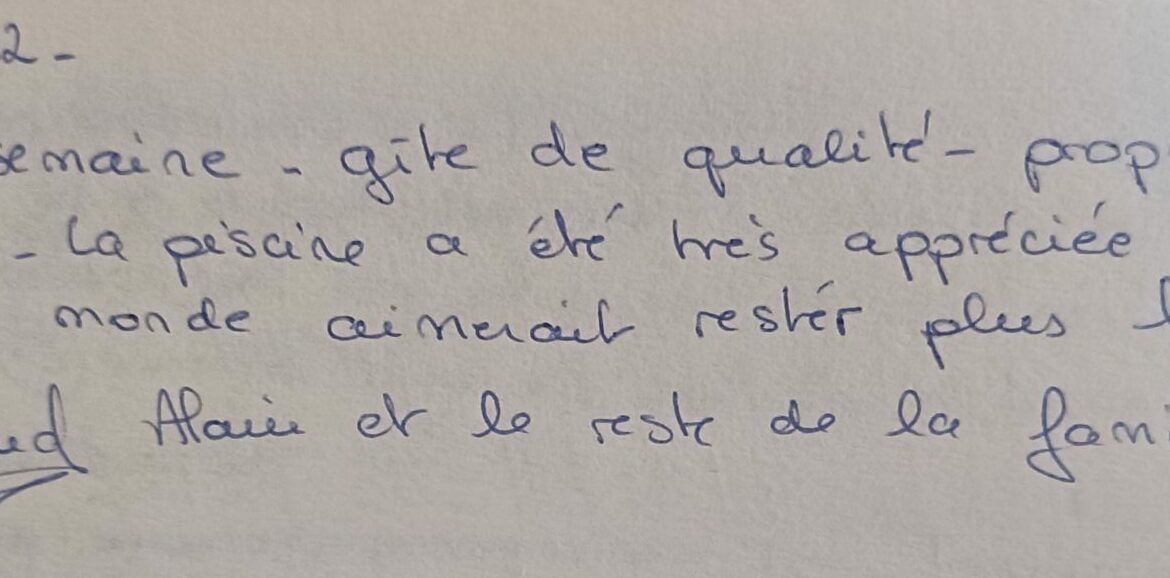 2 -
semaine - gîte de qualité - prop
- La piscine a été très appréciée
monde aimerait rester plus l
Alain et le reste de la fami